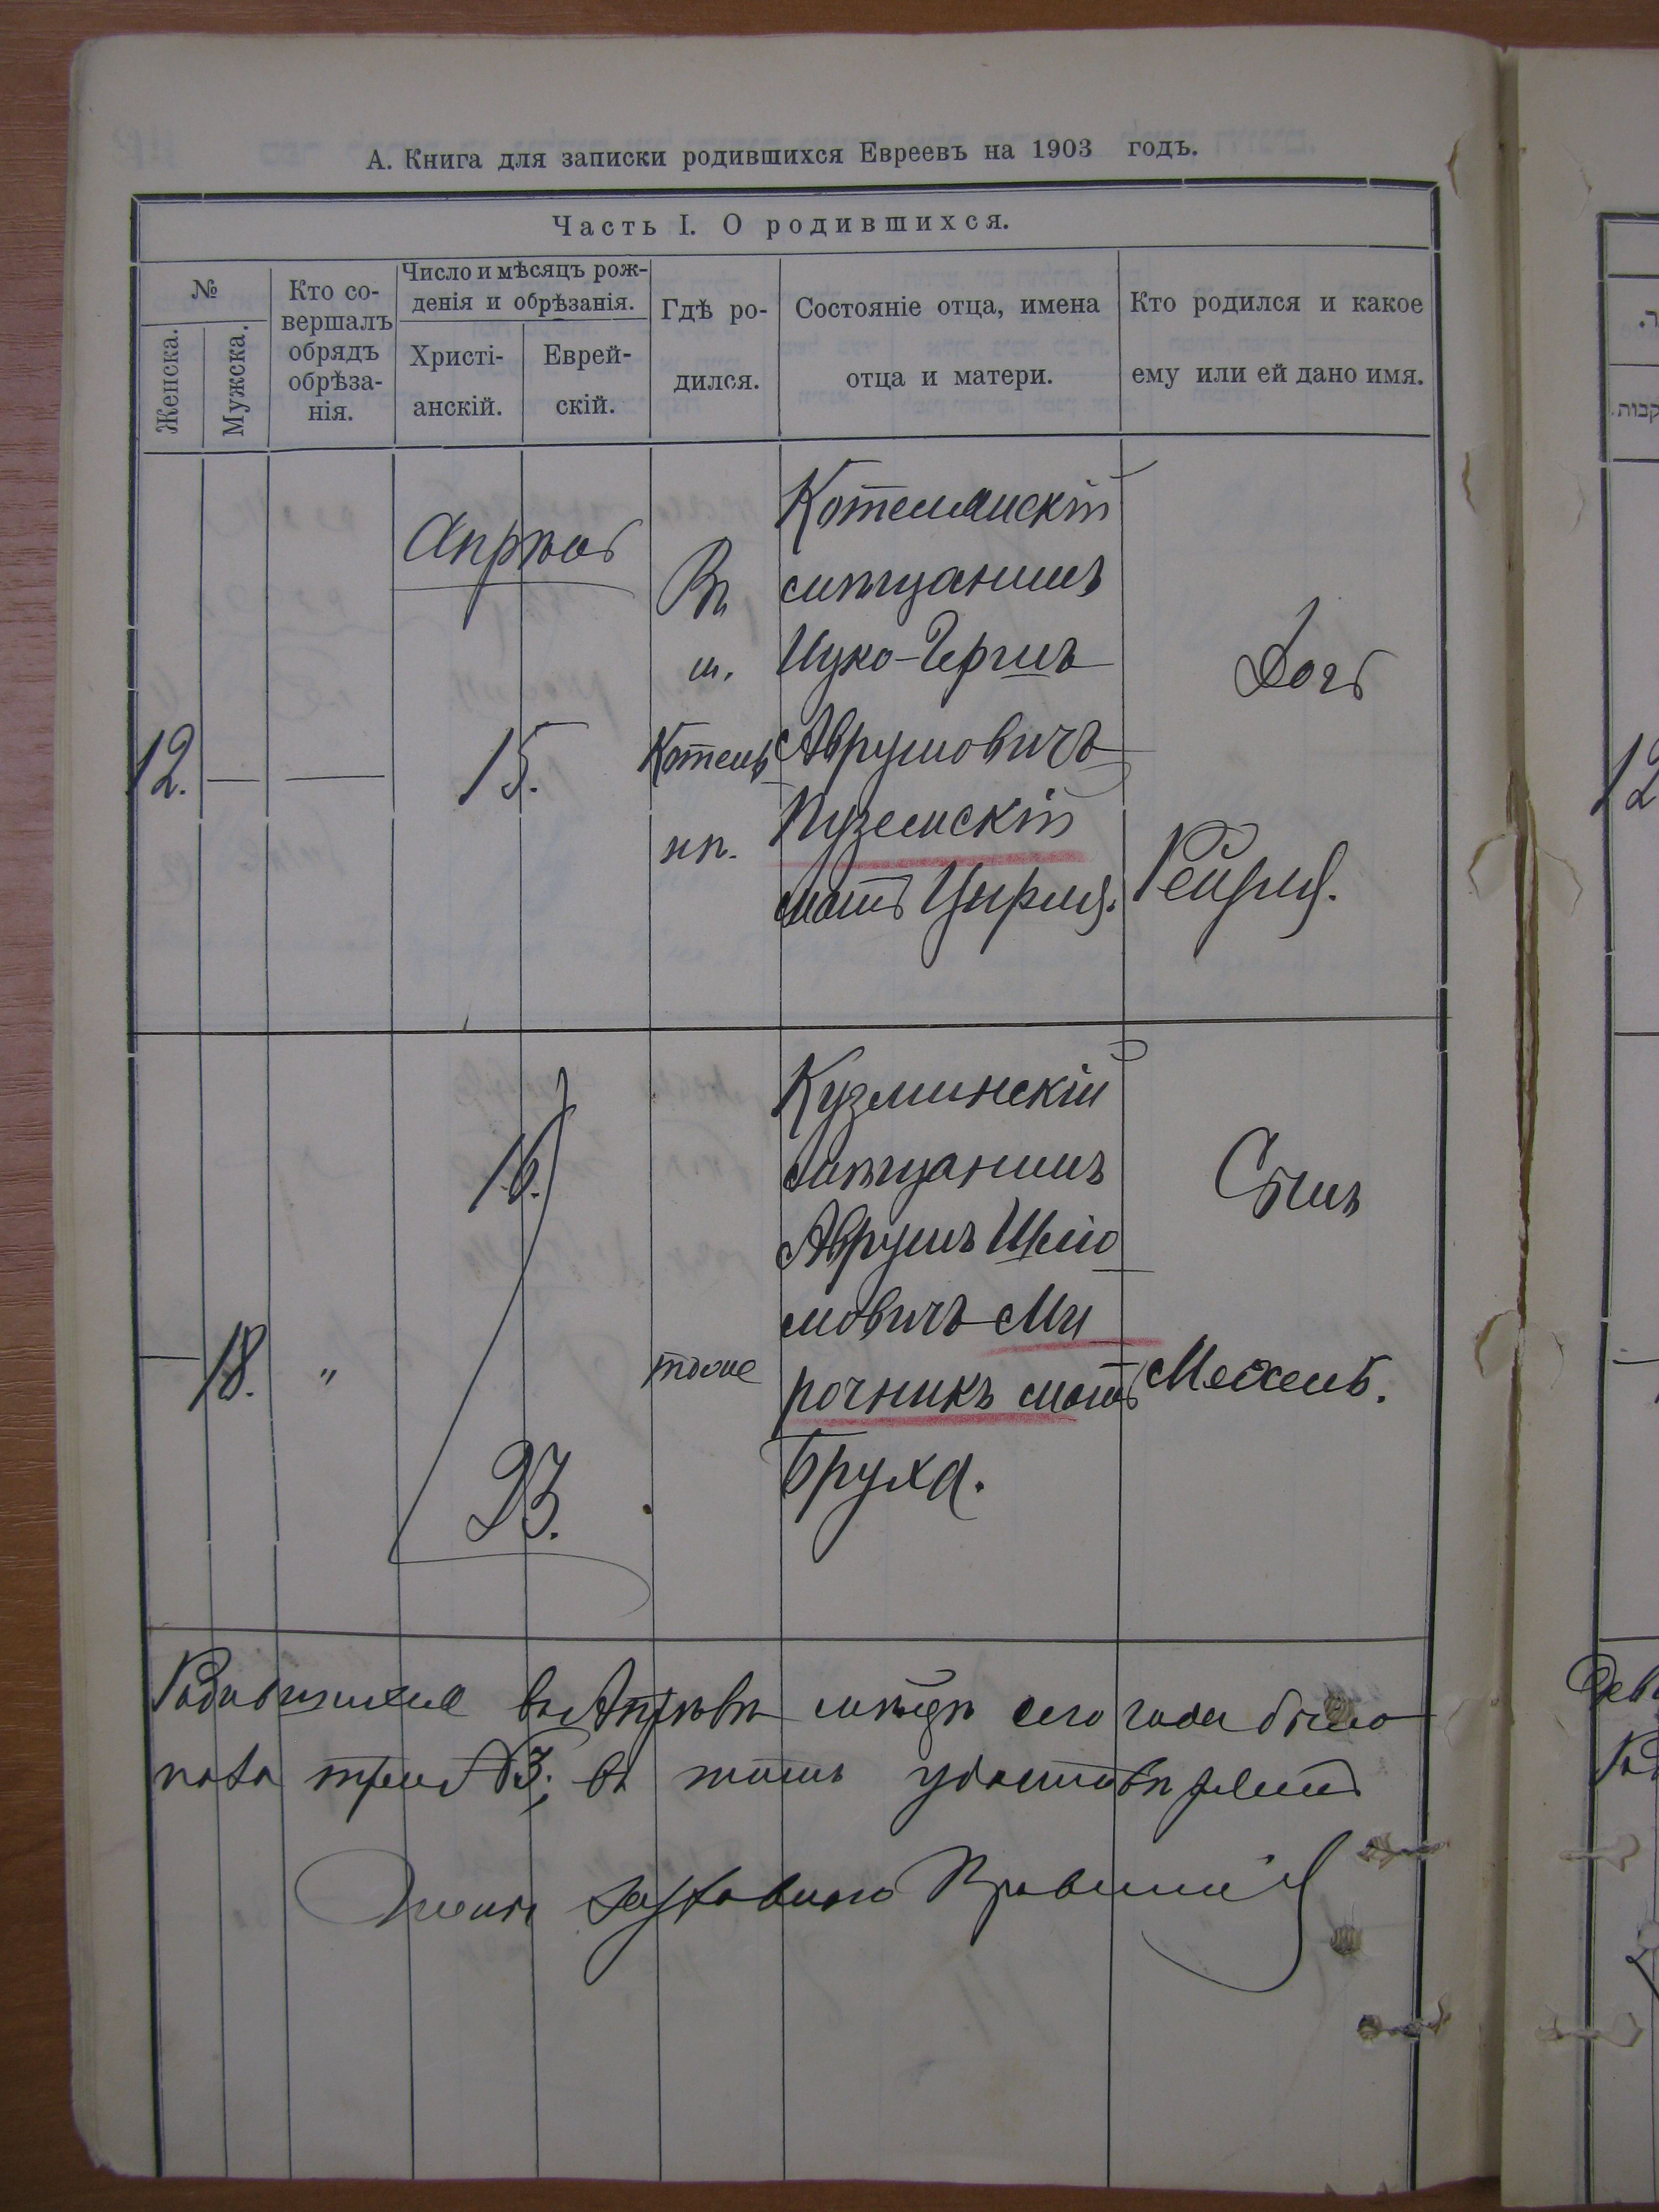 А. Книга для записки родившихся Евреевъ на 1903 годъ.
Часть I. О родившихся.
№
Женска.
Мужска.
Кто со-
вершалъ
обрядъ
обрѣза-
нія.
Число и мѣсяцъ рож-
денія и обрѣзанія.
Христі-
анскій.
Еврей-
скій.
Гдѣ ро-
дился.
Состояніе отца, имена
отца и матери.
Кто родился и какое
ему или ей дано имя.
12.
—
—
Апрѣль
15.
Въ
м.
Котель
нѣ.
Котелянскій
мѣщанинъ
Ицко-Гершъ
Аврумовичъ
мать Цирля.
Дочь
Рейзля.
—
18.
"
16.
23.
тоже
Кузминскій
мѣщанинъ
Аврумъ Шліо
мовичъ Ми
рочникъ мать
Бруха.
Сынъ
Мехель.
Родившихся въ Апрѣлѣ мѣсяцѣ сего года было
3; въ томъ удостовѣряетъ
12